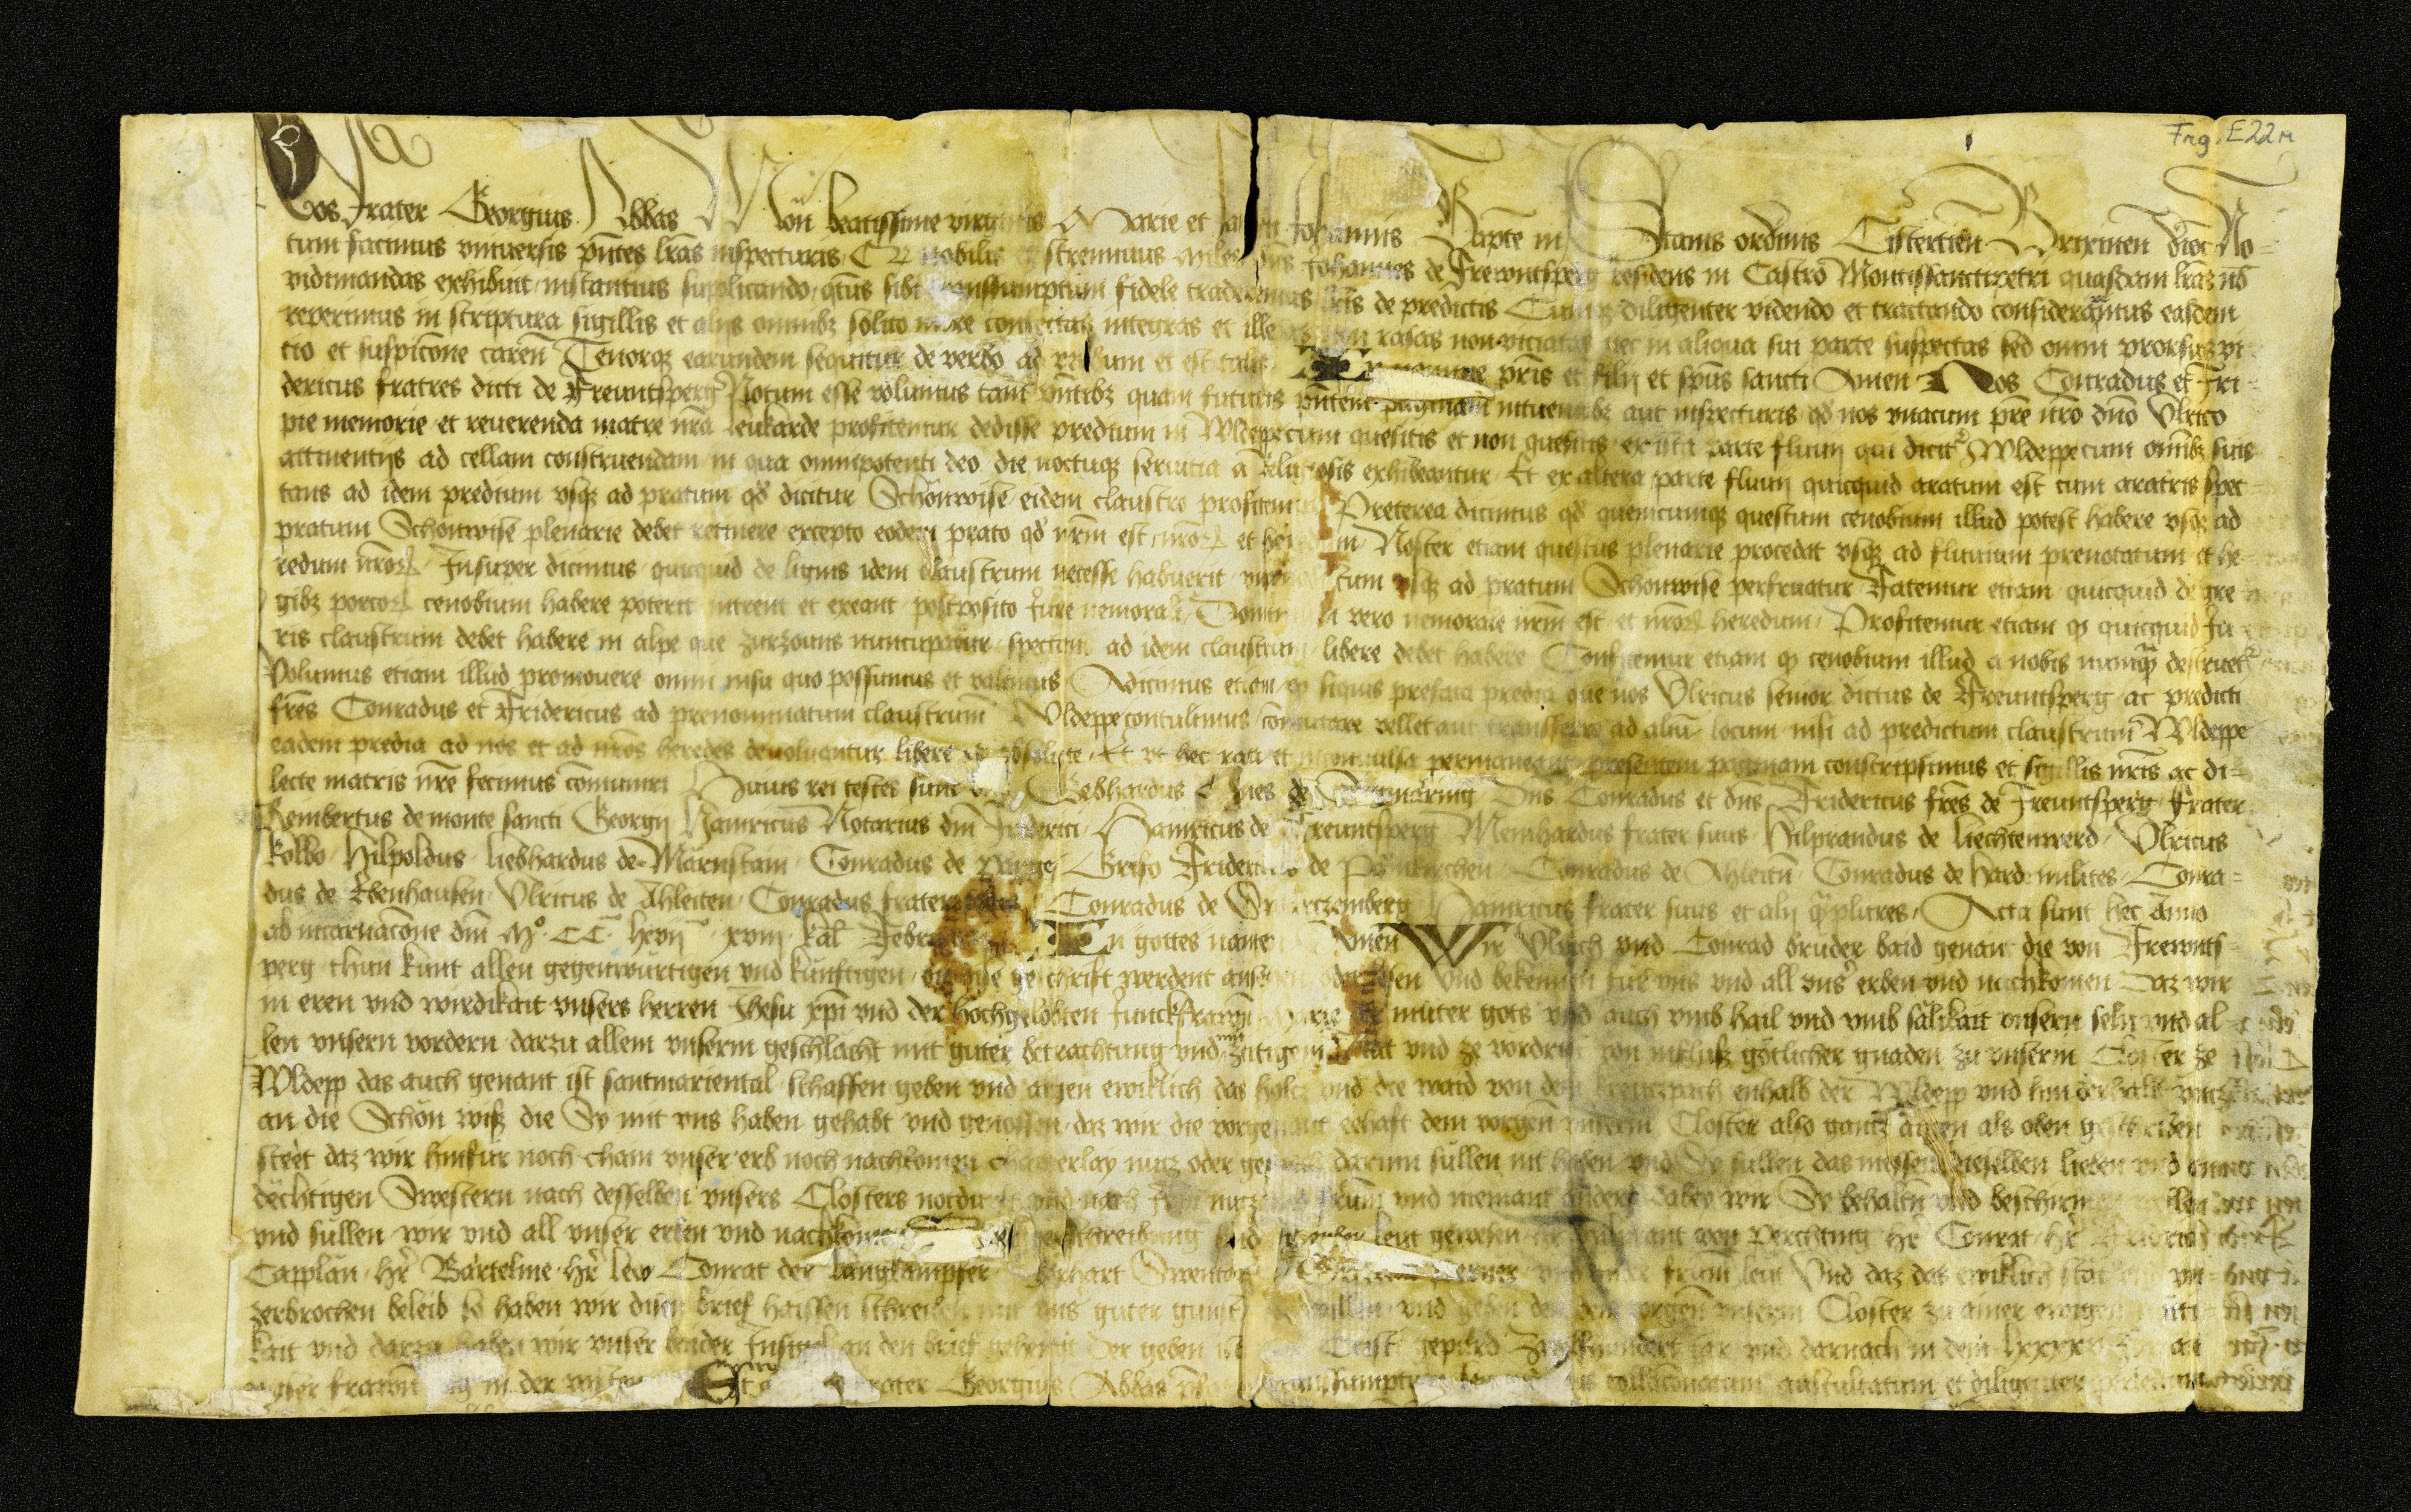 Frag. E22r
Nos frater Georgius Abbas Mon beatissime virginis Marie et sancti Johannis Bapte in Stams ordinis Cistertien Brixinen dioc No=
tum facimus vniuersis pntes lras inspecturis nobilis et strennuus miles dns Johannes de Frewntsperg residens in Castro Montissanctipetri quasdam lras nob
vidimandas exhibuit instantius suplicando qtus sibi transsumptum fidele traderemus lris de predictis diligenter videndo et tractando consideramus easdem
reperimus in scriptura sigillis et alijs omnibz solito more confectas integras et illesas non rasas non viciatas nec in aliqua sui parte suspectas sed omni prorsus vi
tio et suspicone caren Tenorqz earundem sequitur de verbo ad verbum et est talis In nomine pris et filij et spus sancti Amen Nos Conradus et Fri=
dericus fratres dicti de Freuntsperg Notum esse volumus tam pntibz quam futuris pntem paginam intuentibz aut inspecturis qd nos vnacum pre nro dno Vlrico
pie memorie et reuerenda matre nra leukarde profitemur dedisse predium in Wldeppe cum quesitis et non quesitis ex ista parte fluuij qui dicit Wldeppe cum omibz suis
attinentijs ad cellam construendam in qua omnipotenti deo die noctuqz seruitia a religiosis exhibeantur Et ex altera parte fluuij quicquid aratum est cum aratris spec=
tans ad idem predium vsqz ad pratum qd dicitur Schonwise eidem claustro profitemur Preterea dicimus qd quemcumqz questum cenobium illud potest habere vsqz ad
pratum Schonwise plenarie debet retinere excepto eodem prato qd nrm est nror et heredum Noster etiam questus plenarie procedat vsqz ad fluuium prenotatum et he=
redum nror Insuper dicimus quicquid de lignis idem claustrum necesse habuerit vsqz ad pratum Schonwise perfruatur Fatemur etiam quicquid de gre
gibz porcor cenobium habere poterit intrent et exeant postposito Jure nemorali vero nemorale nrm est et nror heredum Profitemur etiam q quicquid Ju
ris claustrum debet habere in alpe que zurzouns nuncupatur spectans ad idem claustrum libere debet habere Confitemur etiam q cenobium illud a nobis nunq destruet
Volumus etiam illud promouere omni nisu quo possumus et valemus Adicimus etiam q siquis prefata predia que nos Vlricus senior dictus de Freuntsperg ac predicti
fres Conradus et Fridericus ad prenominatum claustrum Wldeppe contulimus comutare vellet aut transferre ad aliu locum nisi ad predictum claustrum Wldeppe
eadem predia ad nos et ad nros heredes deuoluantur libere et absolute Et vt hec rata et inconuulsa permaneant presentem paginam conscripsimus et sigillis nris ac di=
lecte matris nre fecimus comuniri Huius rei testes sunt Gebhardus Dns Conradus et dns Fridericus fres de Freuntsperg Frater
Rembertus de monte sancti Georgij Hainricus Notarius dni Friderici Hainricus de Freuntsperg Meinhardus frater suus Hilprandus de Liechtenwerd Vlricus
Kolbo Hilpoldus Liebhardus de Marnstain Conradus de Fridericus de Conradus de Ahleitn Conradus de hard milites Conra=
dus de Ebenhausen Vlricus de Ahleiten Conradus frater suus Conradus de Hainricus frater suus et alij qplures Acta sunt hec Anno
ab incarnacone dni Mo CC lxvij xviij kal Febr In gottes namen Amen Wir Vlrich vnd Conrad bruder baid genant die von Frewnts=
perg thun kunt allen gegenwurtigen vnd kunftigen geschrift werdent vnd bekennen fur vns vnd all vns erben vnd nachkomen Daz wir
in eren vnd wirdikait vnsers herren Jhesu xpi vnd der hochgelobten Junckfrawn Marie muter gots vnd auch vmb hail vnd vmb salikait vnsern seln vnd al=
len vnsern vordern darzu allem vnserm geschlacht mit guter betrachtung vnd mit zeitigem Rat vnd ze vordrist von influss gotlicher gnaden zu vnserm Closter ze
Wldepp das auch genant ist santmariental schaffen geben vnd aigen ewiklich das holtz vnd die waid von dem enhalb der Wldepp vnd
an die Schon wiss die Sy mit vns haben gehabt vnd genossen daz wir die vorgenant dem vorgen vnserm Closter also gantz aigen als oben geschriben
steet daz wir hinfur noch chain vnser erb noch nachkomen chainerlay nutz oder darinn sullen nit haben vnd Sy sullen das niessen dieselben lieben vnd
dechtigen Swestern nach desselben vnsers Closters notdurft vnd nach nutz frum vnd niemant anders dabey wir Sy behaltn vnd beschirmen wellen
vnd sullen wir vnd all vnser erben vnd nachkomen leut gewesen hr Conrat hr Fridrich
Capplan hr Bartelme hr lew Conrat der langkampfer frum leut Vnd daz das ewiklich stat vn=
zerbrochen beleib so haben wir disen brief haissen schreiben mit vns guter gunst willen vnd geben den dem vorgen vnserm Closter zu ainer ewigen
kait vnd darzu haben wir vnser beider Insigel an den brief gehengt Der geben ist Crist gepurd Zwelfhundert jar vnd darnach in dem
vnser frawn tag in der frater Georgius Abbas collaconatum auscultatum et diligenter